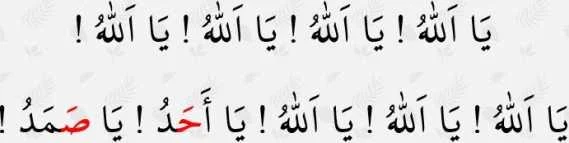 يَا اَللهُ ! يَا اَللهُ ! يَا اَللهُ ! يَا اَللهُ !
يَا اَللهُ ! يَا اَللهُ ! يَا اَللهُ ! يَا أَحَدُ ! يَا صَمَدُ !